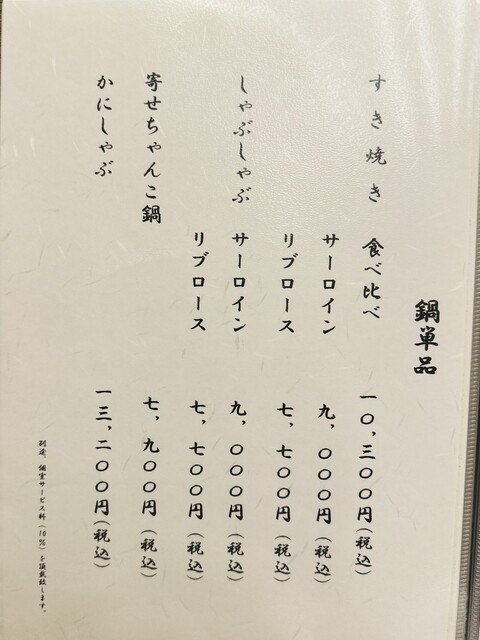 鍋単品
すき焼き 食べ比べ 一〇,三〇〇円(税込)
サーロイン 九,〇〇〇円(税込)
リブロース 七,七〇〇円(税込)
しゃぶしゃぶ サーロイン 九,〇〇〇円(税込)
リブロース 七,七〇〇円(税込)
寄せちゃんこ鍋 七,九〇〇円(税込)
かにしゃぶ 一三,二〇〇円(税込)
別途、個室サービス料(10%)を頂戴致します。